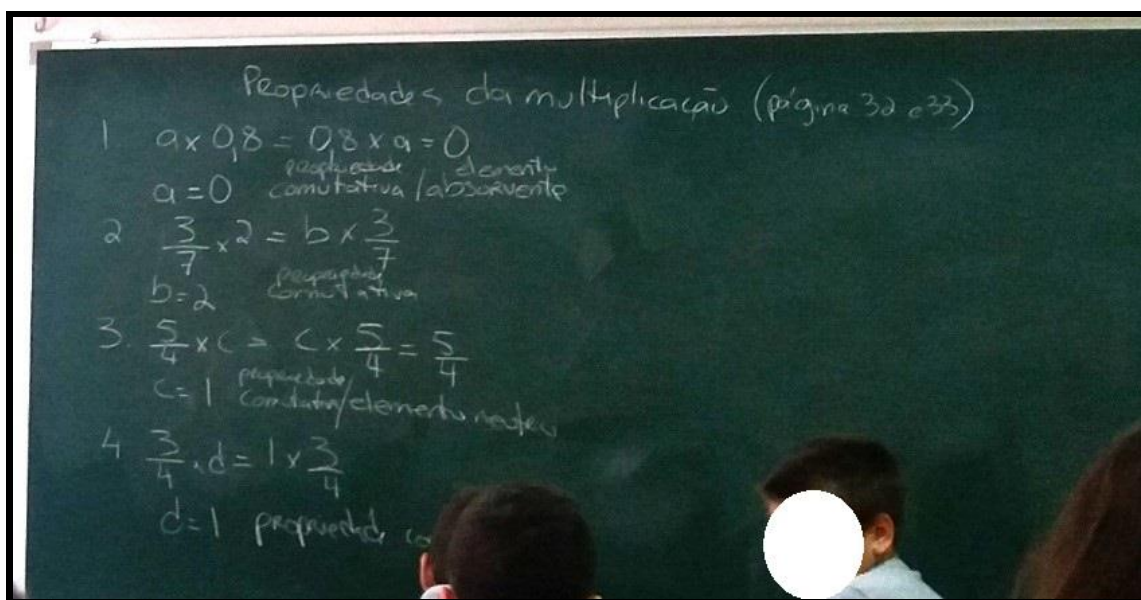 Propriedades da multiplicação (página 32 e 33)
1 a x 0,8 = 0,8 x a = 0
propriedade elemento
a = 0 comutativa / absorvente
2 3/7 x 2 = b x 3/7
propriedade
b = 2 comutativa
3. 5/4 x c = c x 5/4 = 5/4
propriedade
c = 1 comutativa/elemento neutro
4 3/4 x d = 1 x 3/4
d = 1 propriedade co